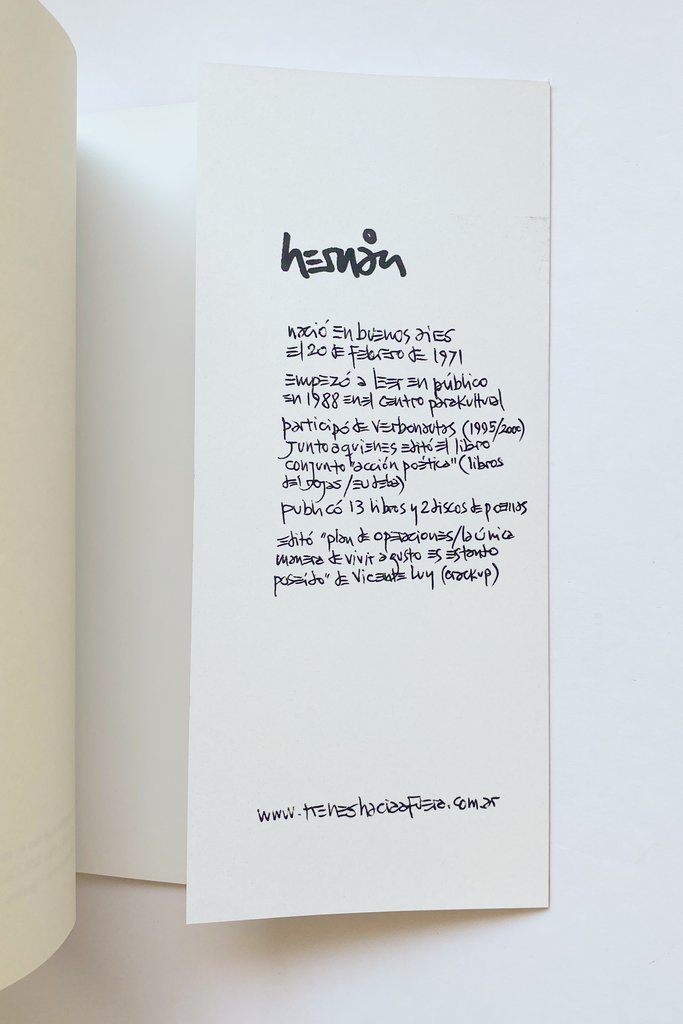 hernán
nació en buenos aires
el 20 de febrero de 1971
empezó a leer en público
en 1988 en el centro parakultural
participó de verbonautas (1995/2000)
junto a quienes editó el libro
conjunto "acción poética" (libros
del rojas/eudeba)
publicó 13 libros y 2 discos de poemas
editó "plan de operaciones/la única
manera de vivir a gusto es estando
poseído" de Vicente luy (crackup)
www.treneshaciaafuera.com.ar